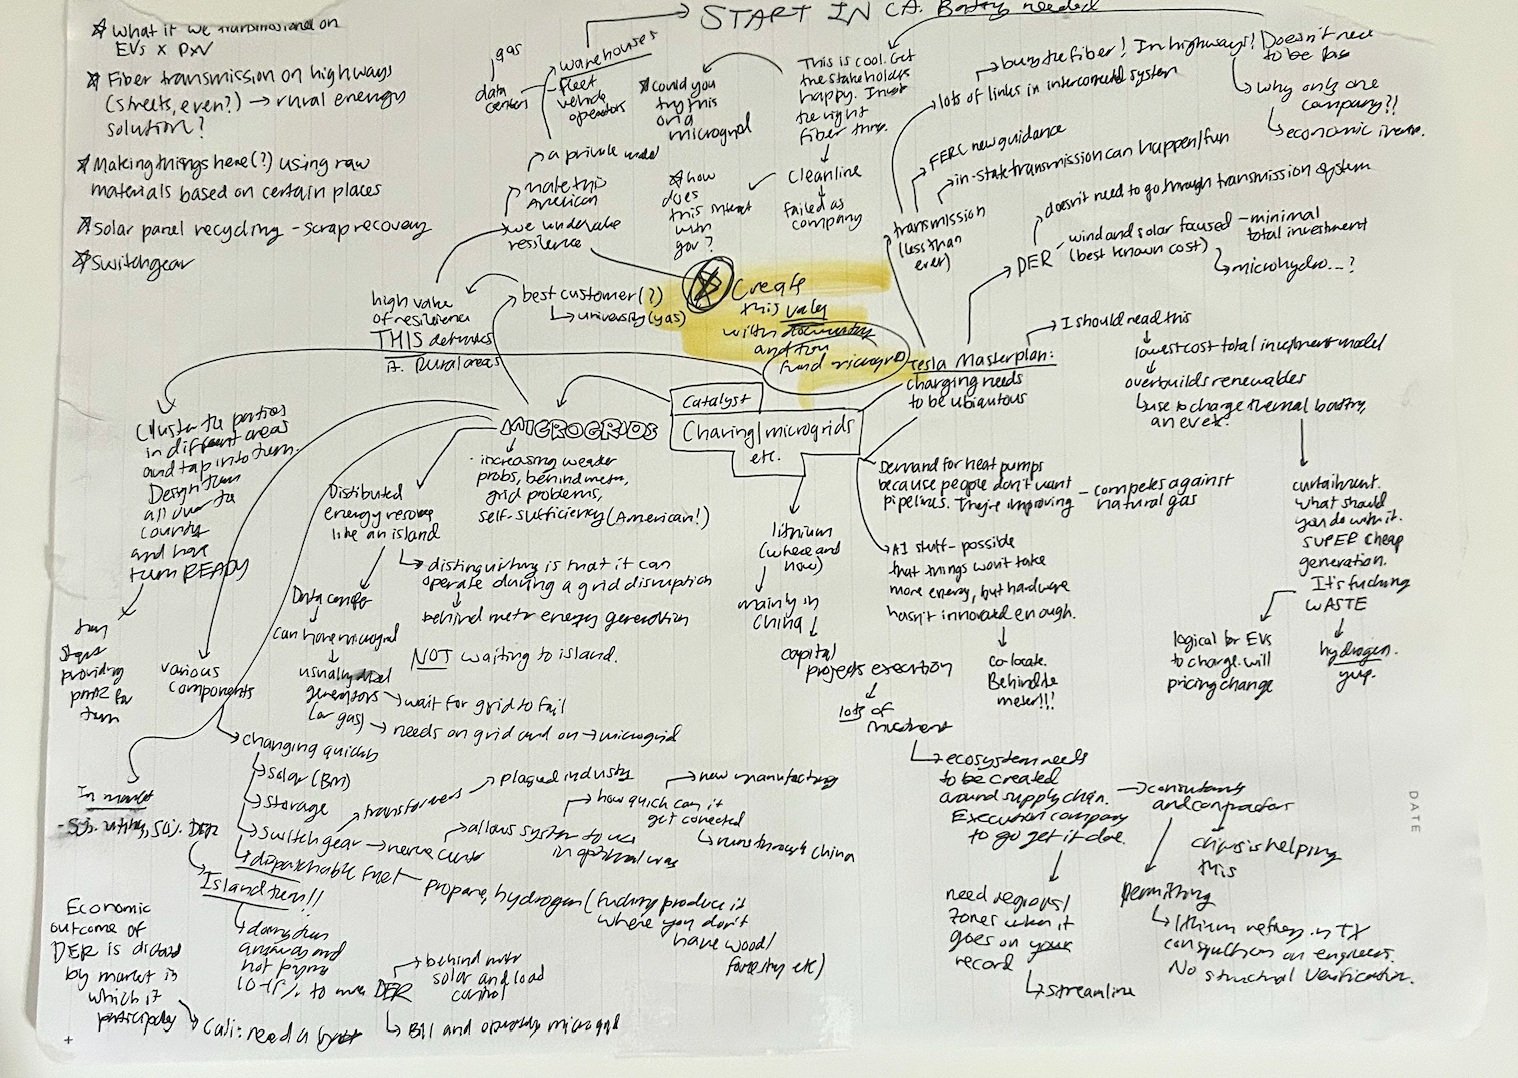 START IN CA. Battery needed
What if we transmissioned on
EVs x PxV
Fiber transmission on highways
(streets, even?) → rural energy
solution?
Making things here(?) using raw
materials based on certain places
Solar panel recycling - scrap recovery
Switchgear
gas
data
centers
warehouses
fleet
vehicle
operators
a private
make this
American
we undervalue
resilience
high value
of resilience
THIS
Rural areas
best customer(?)
university (yas)
could you
try this
on a
microgrid
how
does
this
with
gov?
This is cool. Get
the stakeholders
happy.
the right
fiber thru.
Cleanline
failed as
company
Create
this
with
and
fund
bury the fiber! In highways! Doesn't need
to be
why only one
company??
economic
lots of links in interconnected system
FERC new guidance
in-state transmission can happen/fun
transmission
(less than
ever)
doesn't need to go through transmission system
DER
wind and solar focused - minimal
(best known cost) total investment
microhydro...?
Tesla Masterplan:
charging needs
to be ubiquitous
I should read this
lowest cost total investment model
overbuilds renewables
use to charge thermal battery,
an ev etc.
curtailment.
what should
you do with it.
SUPER cheap
generation.
It's fucking
WASTE
logical for EVs
to charge. will
pricing change
hydrogen.
yup.
Catalyst
Charing/microgrids
etc.
MICROGRIDS
- increasing weather
probs, behind meter,
grid problems,
self-sufficiency (American!)
Cluster the parties
in different areas
and tap into them.
Design them
all over the
county
and have
them READY
providing
for
them
various
components
Distibuted
energy resource
like an island
distinguishing is that it can
operate during a grid disruption
behind meter energy generation
NOT waiting to island.
Data center
can have microgrid
usually diesel
generators
(or gas)
wait for grid to fail
needs on grid and on → microgrid
changing quickly
Solar (BM)
Storage
Switchgear → nerve center
transformers
plagued industry
allows system to use
in optimal ways
how quick can it
get conected
new manufacturing
runs through China
dispatchable fuel
propane, hydrogen (fucking produce it
where you don't
have wood/
forestry etc)
In market
Island them!!
to
Economic
outcome of
DER is dictated
by market in
which it
participates
Cali: need a
DER
behind meter
solar and load
control
Bill and operating microgrid
lithium
(where and
how)
mainly in
China
capital
projects execution
lots of
ecosystem needs
to be created
around supply chain.
Execution company
to go get it done.
need regions/
zones when it
goes on your
record
streamline
consultants
and contractors
chips is helping
this
permitting
lithium refinery in TX
engineers.
No structural verification.
Demand for heat pumps
because people don't want
pipelines. They're improving
- competes against
natural gas
AI stuff - possible
that things won't take
more energy, but hardware
hasn't innovated enough.
co locate.
Behind the
meter!!!
DATE